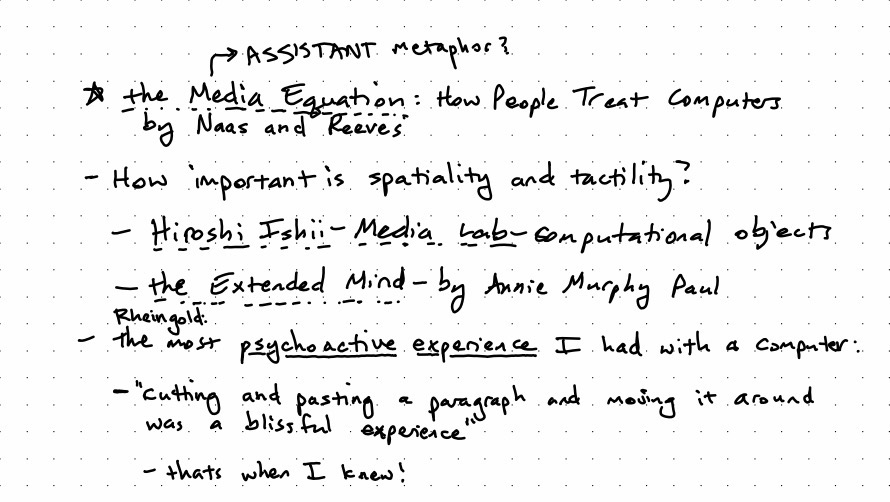 → ASSISTANT metaphor?
☆ the Media Equation: How People Treat Computers
by Naas and Reeves
- How important is spatiality and tactility?
- Hiroshi Ishii - Media Lab - computational objects
- the Extended Mind - by Annie Murphy Paul
Rheingold:
- the most psychoactive experience I had with a computer:
- "cutting and pasting a paragraph and moving it around
was a blissful experience"
- thats when I knew!